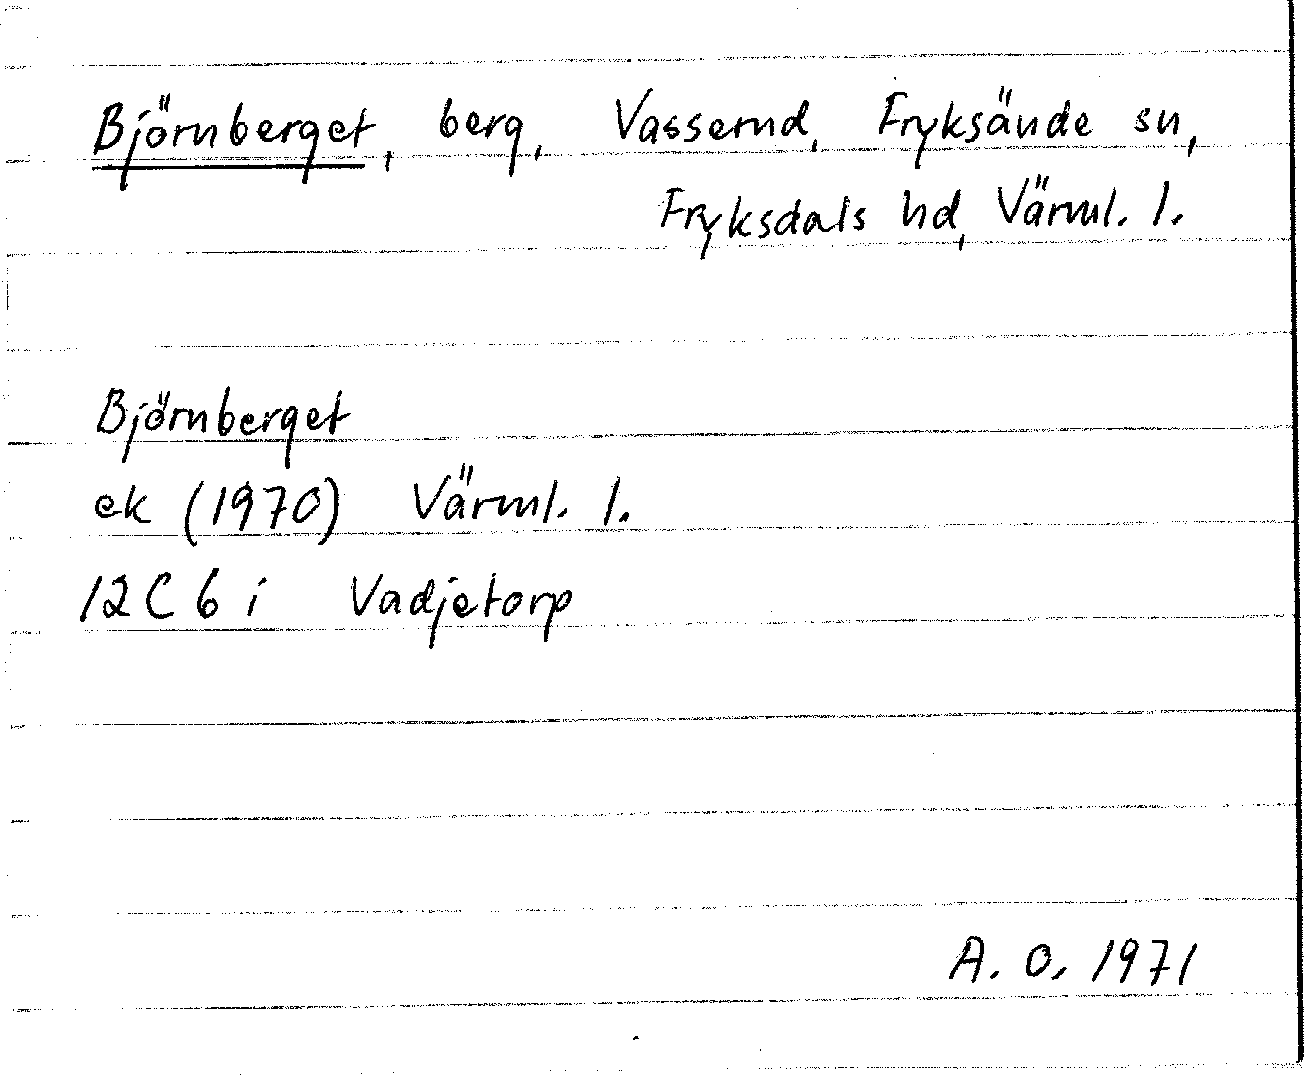 Björnberget, berg, Vassernd, Fryksände sn,
Fryksdals hd, Värml. l.
Björnberget
ek (1970) Värml. l.
12 C 6 i Vadjetorp
A. O. 1971